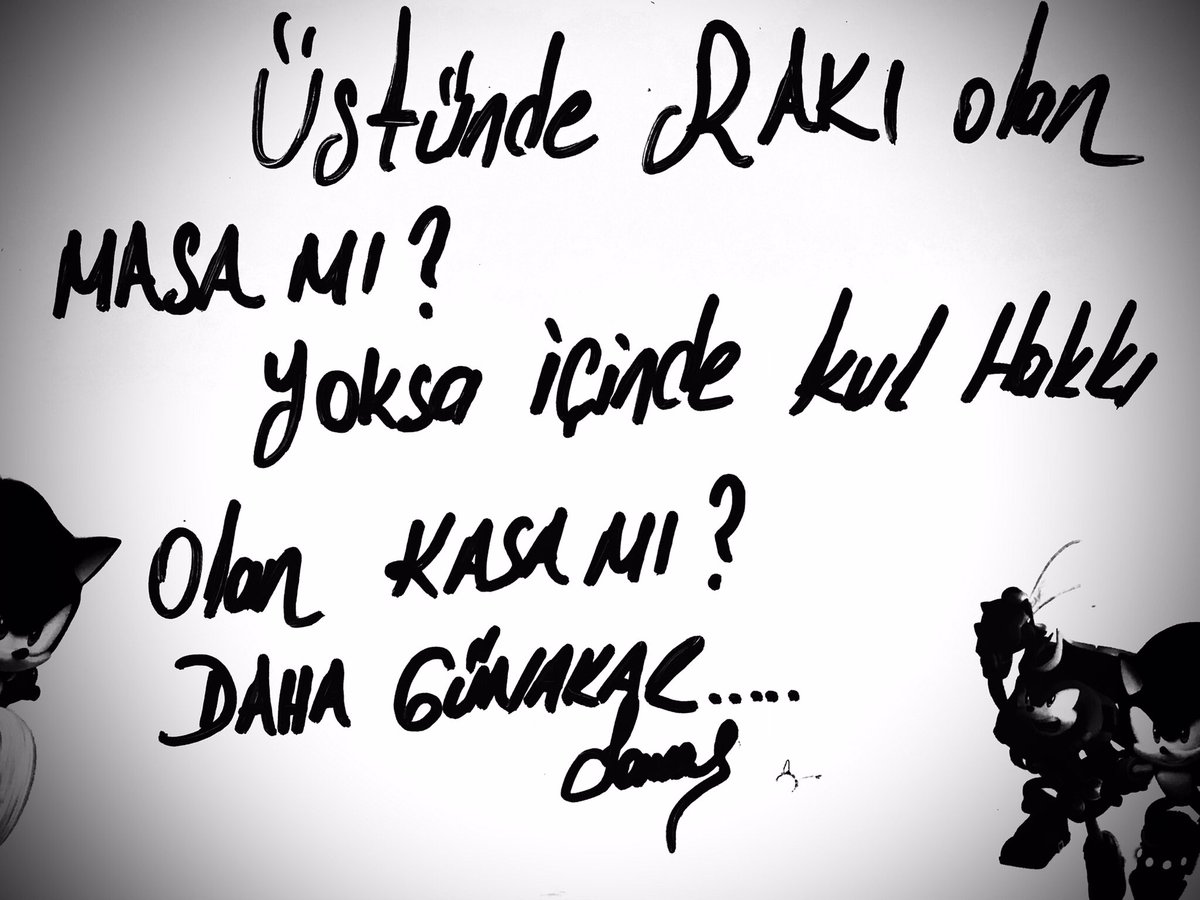 Üstünde RAKI olan
MASA MI?
yoksa içinde kul Hakkı
Olan KASA MI?
DAHA GÜNAKAR.....